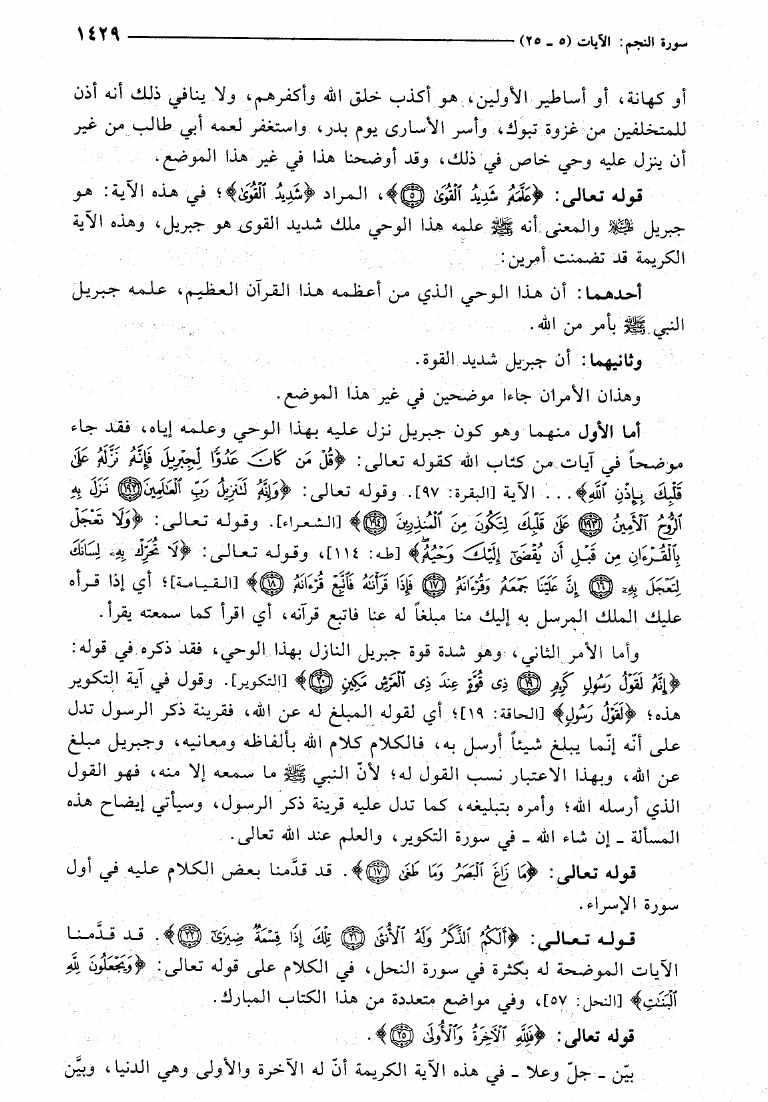 سورة النجم: الآيات (٥ ـ ٢٥) ١٤٢٩
أو كهانة، أو أساطير الأولين، هو أكذب خلق الله وأكفرهم، ولا ينافي ذلك أنه أذن
للمتخلفين من غزوة تبوك، وأسر الأسارى يوم بدر، واستغفر لعمه أبي طالب من غير
أن ينزل عليه وحي خاص في ذلك، وقد أوضحنا هذا في غير هذا الموضع.
قوله تعالى: ﴿عَلَّمَهُ شَدِيدُ الْقُوَىٰ ۝٥﴾، المراد ﴿شَدِيدُ الْقُوَىٰ﴾؛ في هذه الآية: هو
جبريل عليه السلام والمعنى أنه ﷺ علمه هذا الوحي ملك شديد القوى هو جبريل، وهذه الآية
الكريمة قد تضمنت أمرين:
أحدهما: أن هذا الوحي الذي من أعظمه هذا القرآن العظيم، علمه جبريل
النبي ﷺ بأمر من الله.
وثانيهما: أن جبريل شديد القوة.
وهذان الأمران جاءا موضحين في غير هذا الموضع.
أما الأول منهما وهو كون جبريل نزل عليه بهذا الوحي وعلمه إياه، فقد جاء
موضحاً في آيات من كتاب الله كقوله تعالى: ﴿قُلْ مَن كَانَ عَدُوًّا لِّجِبْرِيلَ فَإِنَّهُ نَزَّلَهُ عَلَىٰ
قَلْبِكَ بِإِذْنِ اللَّهِ﴾... الآية [البقرة: ٩٧]. وقوله تعالى: ﴿وَإِنَّهُ لَتَنزِيلُ رَبِّ الْعَالَمِينَ ۝١٩٢ نَزَلَ بِهِ
الرُّوحُ الْأَمِينُ ۝١٩٣ عَلَىٰ قَلْبِكَ لِتَكُونَ مِنَ الْمُنذِرِينَ ۝١٩٤﴾ [الشعراء]. وقوله تعالى: ﴿وَلَا تَعْجَلْ
بِالْقُرْءَانِ مِن قَبْلِ أَن يُقْضَىٰ إِلَيْكَ وَحْيُهُ﴾ [طه: ١١٤]، وقوله تعالى: ﴿لَا تُحَرِّكْ بِهِ لِسَانَكَ
لِتَعْجَلَ بِهِ ۝١٦ إِنَّ عَلَيْنَا جَمْعَهُ وَقُرْءَانَهُ ۝١٧ فَإِذَا قَرَأْنَاهُ فَاتَّبِعْ قُرْءَانَهُ ۝١٨﴾ [القيامة]؛ أي إذا قرأه
عليك الملك المرسل به إليك منا مبلغاً له عنا فاتبع قرآنه، أي اقرأ كما سمعته يقرأ.
وأما الأمر الثاني، وهو شدة قوة جبريل النازل بهذا الوحي، فقد ذكره في قوله:
﴿إِنَّهُ لَقَوْلُ رَسُولٍ كَرِيمٍ ۝١٩ ذِي قُوَّةٍ عِندَ ذِي الْعَرْشِ مَكِينٍ ۝٢٠﴾ [التكوير]. وقول في آية التكوير
هذه؛ ﴿لَقَوْلُ رَسُولٍ﴾ [الحاقة: ١٩]؛ أي لقوله المبلغ له عن الله، فقرينة ذكر الرسول تدل
على أنّه إنّما يبلغ شيئاً أرسل به، فالكلام كلام الله بألفاظه ومعانيه، وجبريل مبلغ
عن الله، وبهذا الاعتبار نسب القول له؛ لأنّ النبي ﷺ ما سمعه إلا منه، فهو القول
الذي أرسله الله؛ وأمره بتبليغه، كما تدل عليه قرينة ذكر الرسول، وسيأتي إيضاح هذه
المسألة ـ إن شاء الله ـ في سورة التكوير، والعلم عند الله تعالى.
قوله تعالى: ﴿مَا زَاغَ الْبَصَرُ وَمَا طَغَىٰ ۝١٧﴾. قد قدَّمنا بعض الكلام عليه في أول
سورة الإسراء.
قوله تعالى: ﴿أَلَكُمُ الذَّكَرُ وَلَهُ الْأُنثَىٰ ۝٢١ تِلْكَ إِذًا قِسْمَةٌ ضِيزَىٰ ۝٢٢﴾. قد قدَّمنا
الآيات الموضحة له بكثرة في سورة النحل، في الكلام على قوله تعالى: ﴿وَيَجْعَلُونَ لِلَّهِ
الْبَنَاتِ﴾ [النحل: ٥٧]، وفي مواضع متعددة من هذا الكتاب المبارك.
قوله تعالى: ﴿فَلِلَّهِ الْآخِرَةُ وَالْأُولَىٰ ۝٢٥﴾.
بيّن ـ جلّ وعلا ـ في هذه الآية الكريمة أنّ له الآخرة والأولى وهي الدنيا، وبيَّن